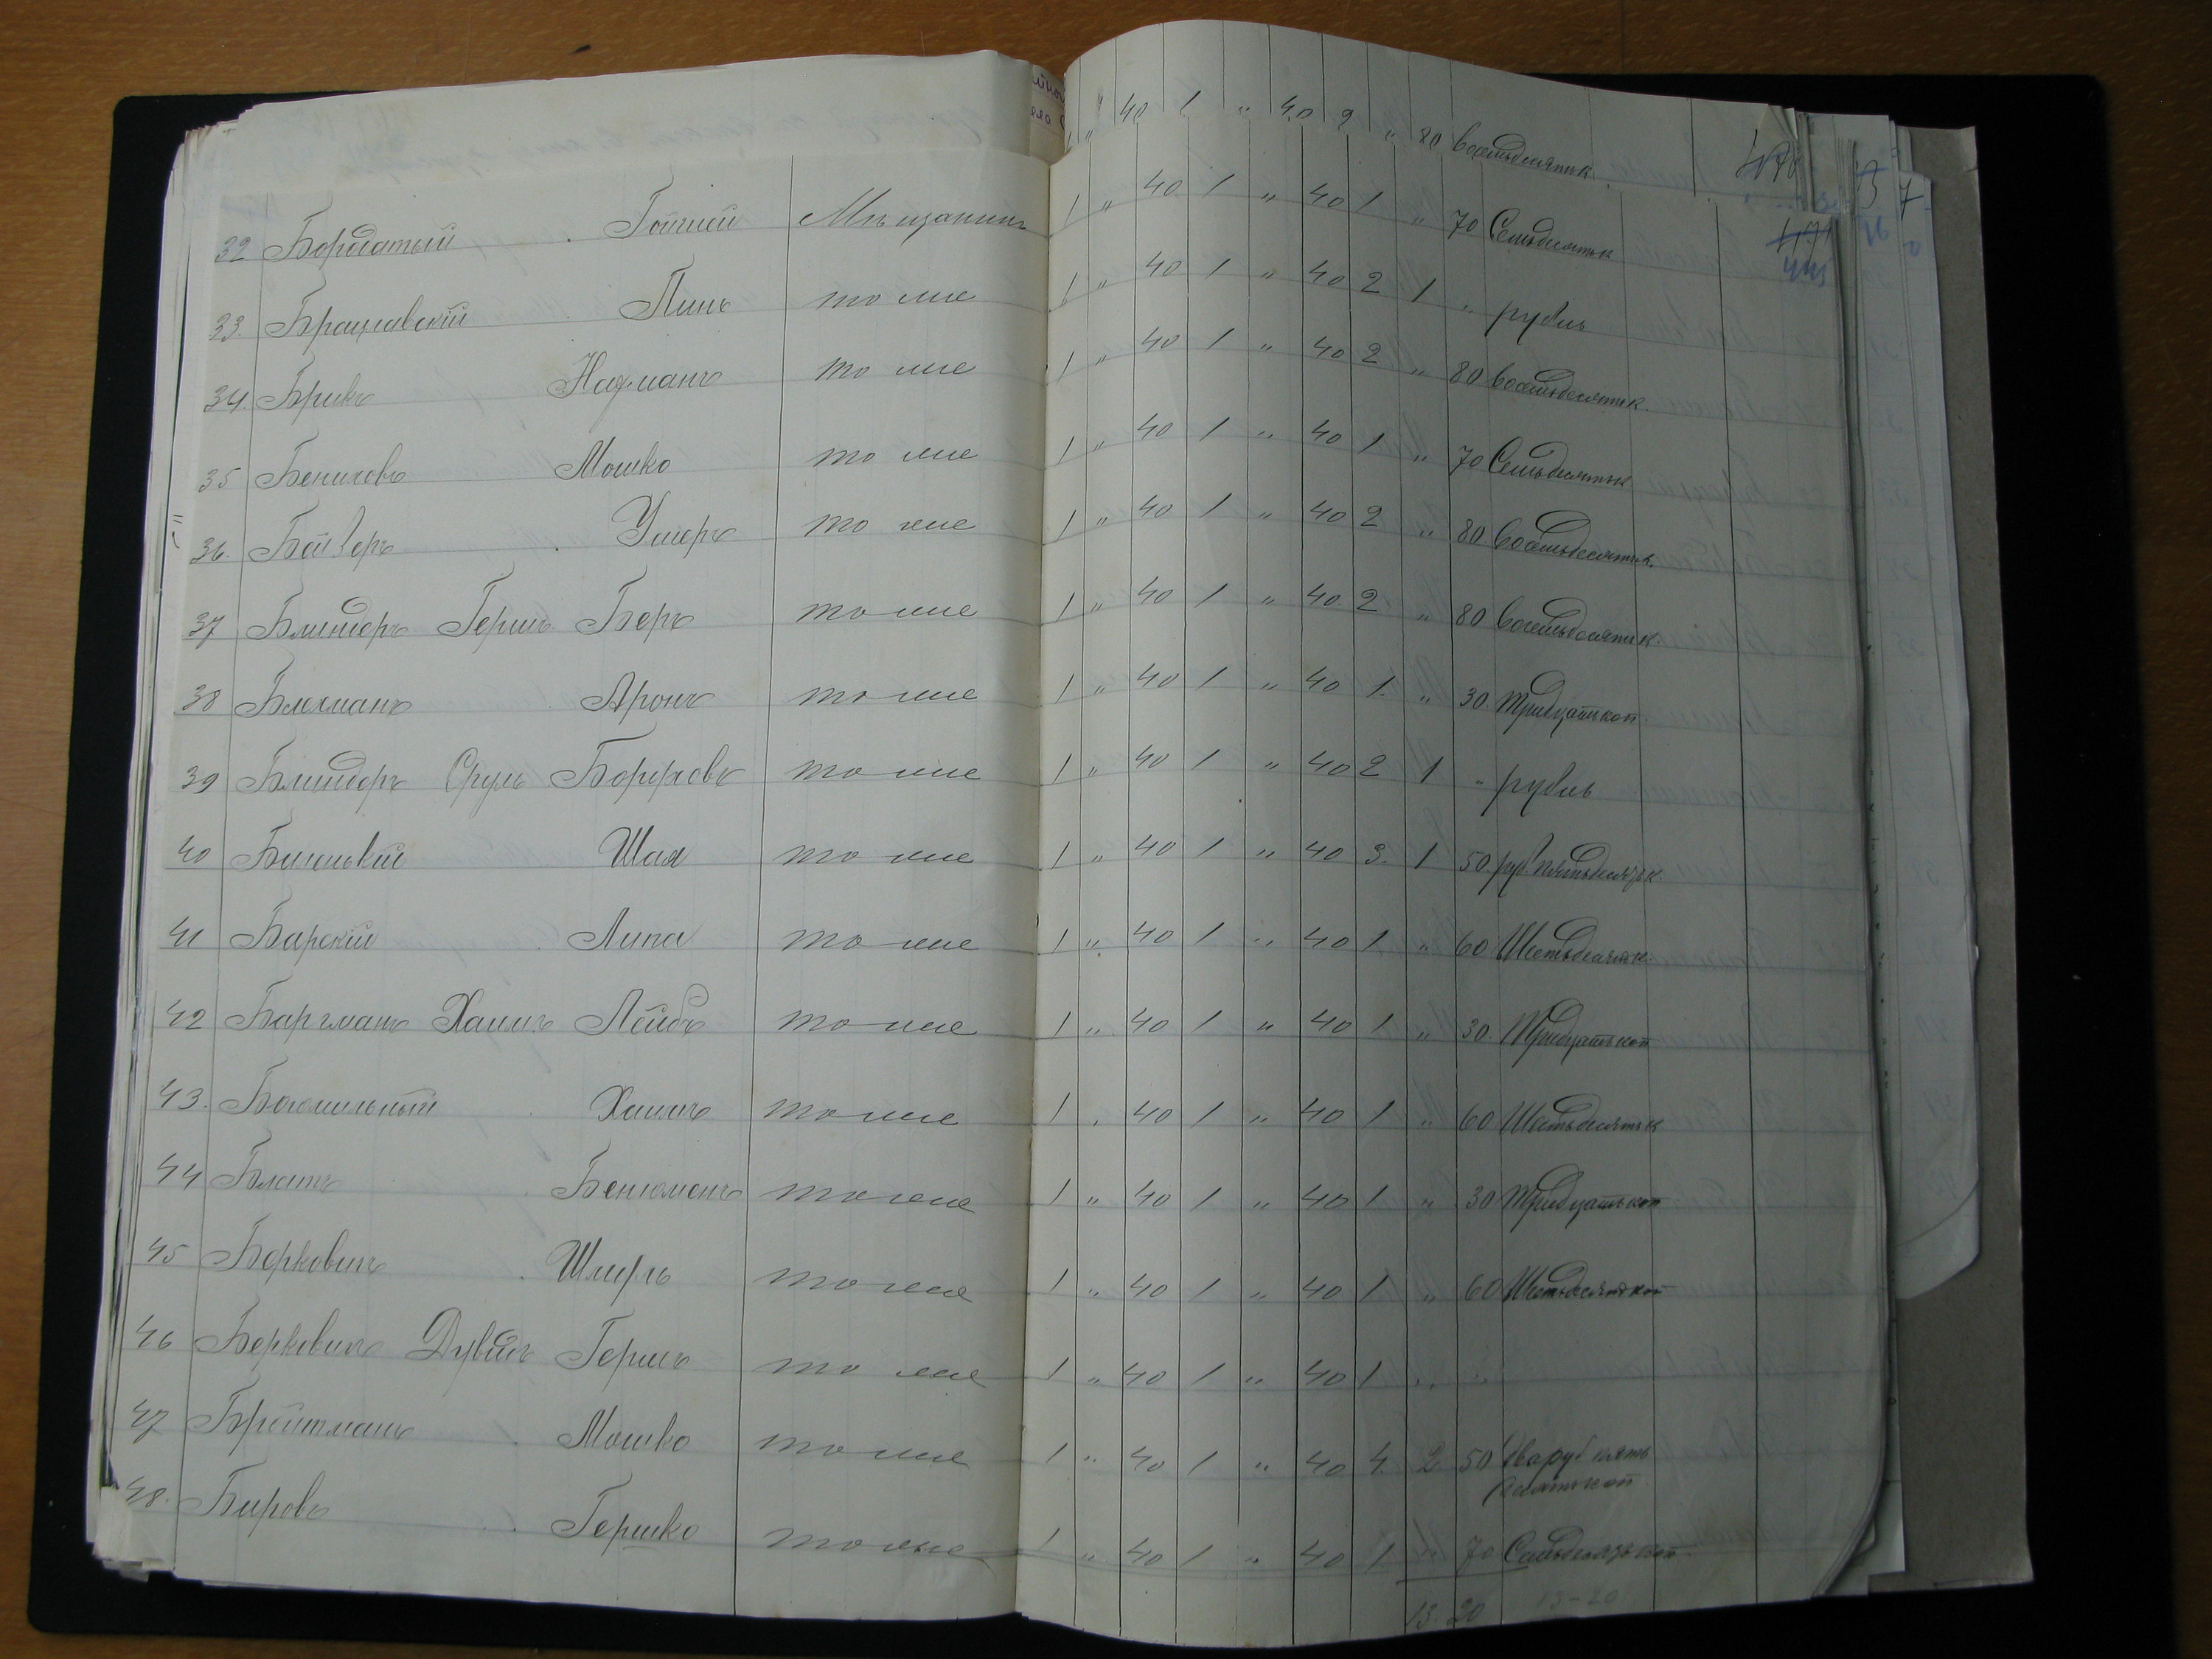 32 Бородатый Гойхшей Мѣщанинъ 1 " 40 1 " 40 2 " 80 восемьдесятъ к
33. Брацлавскій Пинь то же 1 " 40 1 " 40 1 " 70 Семьдесятъ к
34. Брикъ Нахманъ то же 1 " 40 1 " 40 2 1 " рубль
35 Бениховъ Мошко то же 1 " 40 1 " 40 2 " 80 восемьдесятъ к.
36. Умеръ то же 1 " 40 1 " 40 1 " 70 Семьдесятъ к
37 Блиндеръ Гершъ Беръ то же 1 " 40 1 " 40 2 " 80 восемьдесятъ к.
38 Блехманъ Аронъ то же 1 " 40 1 " 40 2 " 80 восемьдесятъ к.
39 Блиндеръ Сруль Боруховъ то же 1 " 40 1 " 40 1. " 30. тридцать коп.
40 Биленькій Шая то же 1 " 40 1 " 40 2 1 " рубль
41 Барскій Липа то же 1 " 40 1 " 40 3. 1 50 руб. пятьдесятъ к.
42 Баргманъ Хаимъ Лейбъ то же 1 " 40 1 " 40 1. " 60 Шестьдесятъ к.
43. Богомильный Хаимъ то же 1 " 40 1 " 40 1 " 30. Тридцать коп
44 Блатъ Бенюменъ то же 1 " 40 1 " 40 1 " 60 Шестьдесятъ к
45 Берковичъ Шмуль то же 1 " 40 1 " 40 1. " 30 Тридцать коп
46 Берковичъ Дувидъ Гершъ то же 1 " 40 1 " 40 1 " 60 Шестьдесятъ коп
47 Брейтманъ Мошко то же 1 " 40 1 " 40 1. " "
48. Бировъ Гершко то же 1 " 40 1 " 40 4. 2 50 Два руб пять
десятъ коп
1 " 40 1 " 40 1 " 70 Семьдесятъ коп.
13. 20 13-20